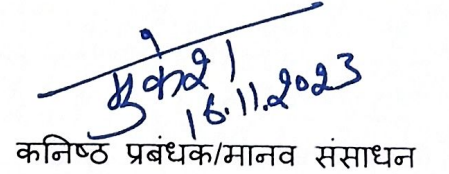 मुकेश।
16.11.2023
कनिष्ठ प्रबंधक/मानव संसाधन